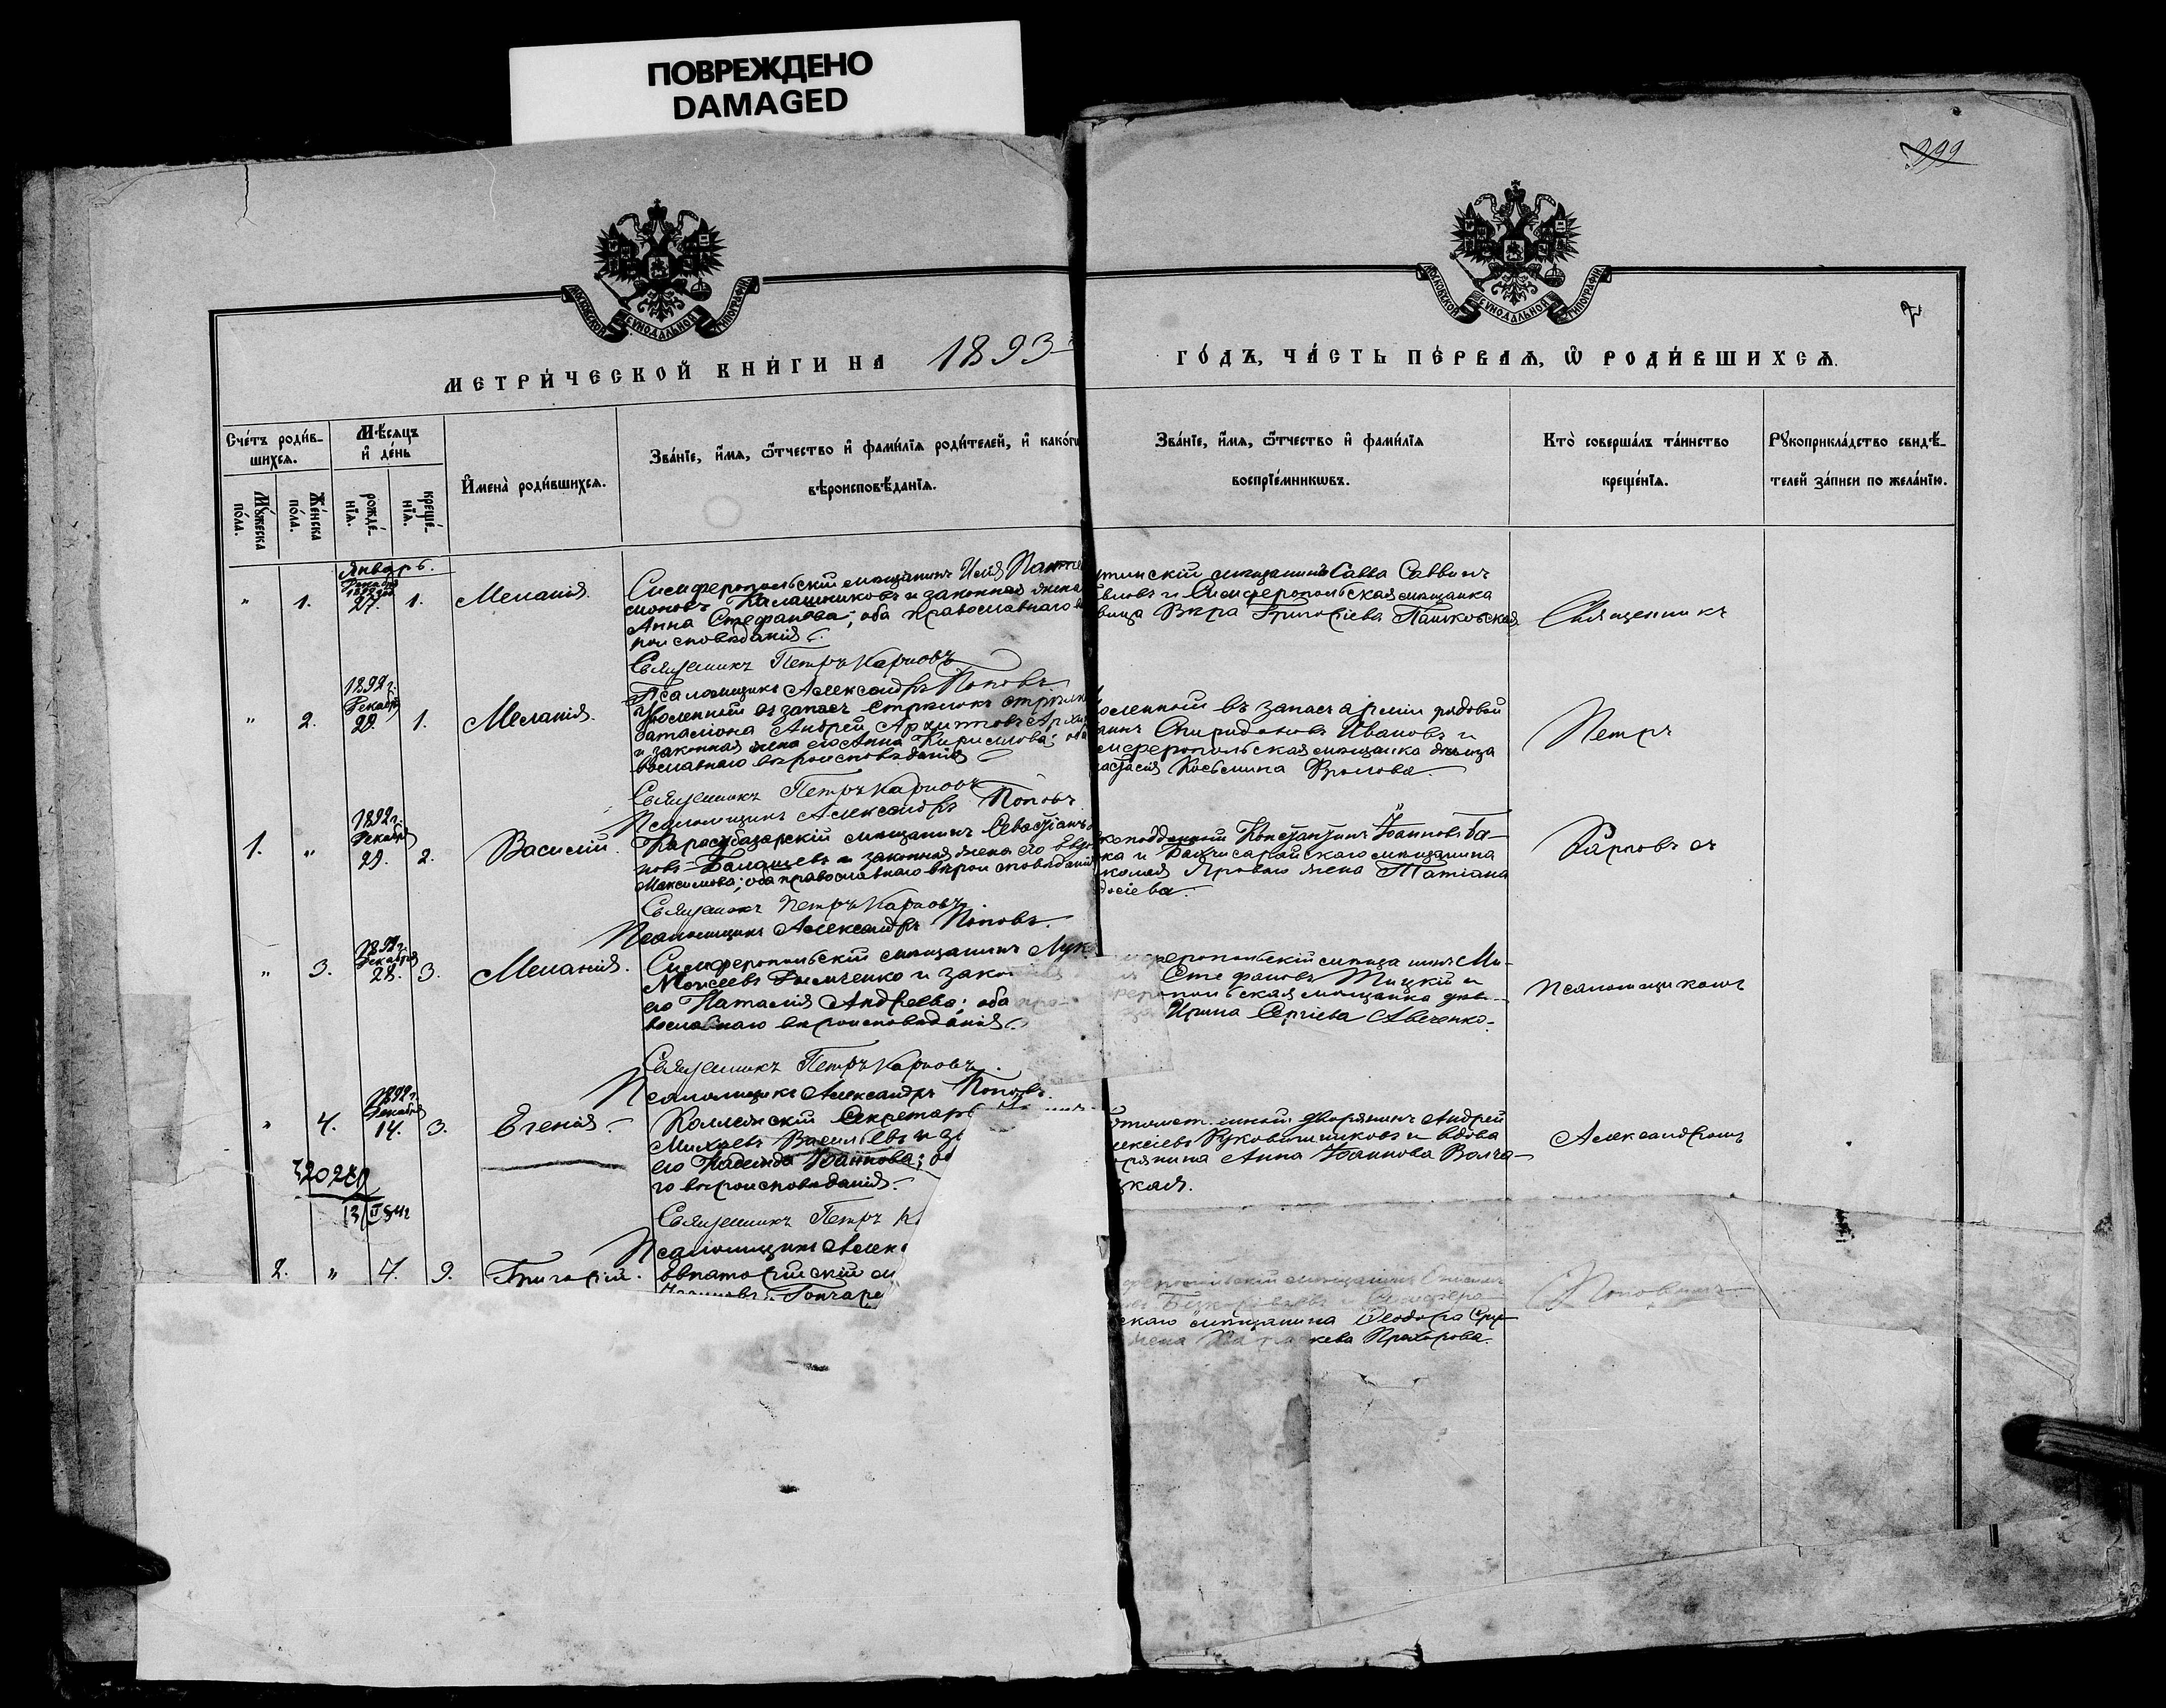 ПОВРЕЖДЕНО
DAMAGED
999
МОСКОВСКОЙ СѴНОДАЛЬНОЙ ТИПОГРАФІИ
МОСКОВСКОЙ СѴНОДАЛЬНОЙ ТИПОГРАФІИ
7
МЕТРИ́ЧЕСКОЙ КНИ́ГИ НА 1893
ГО́ДЪ, ЧА́СТЬ ПЕ́РВАѦ, Ѡ҆ РОДИ́ВШИХСѦ.
Сче́тъ роди́в-
шихсѧ.
Мꙋ́жеска по́ла.
Же́нска по́ла.
Мѣ́сѧцъ
и҆ де́нь
рожде́-
нїѧ.
креще́-
нїѧ.
И҆мена̀ роди́вшихсѧ.
Зва́нїе, и҆́мѧ, ѻ҆́тчество и҆ фами́лїѧ роди́телей, и҆ како́гѡ
вѣроисповѣ́данїѧ.
Зва́нїе, и҆́мѧ, ѻ҆́тчество и҆ фами́лїѧ
воспрїе́мникѡвъ.
Кто̀ соверша́лъ та́инство
креще́нїѧ.
Рꙋкоприкла́дство свидѣ́-
телей за́писи по жела́нїю.
Январь.
" 1. Декабря 1892 год 27. 1. Меланія.
Симферопольскій мѣщанинъ Илія Панте
моновъ Калашниковъ и законная жена
Анна Стефанова; оба православнаго в
роисповѣданія.
Священникъ Петръ Карповъ
Псаломщикъ Александръ Поповъ
тинскій мѣщанинъ Савва Саввинъ
вловъ и Симферопольская мѣщанка
вица Вѣра Григоріева Пашковская
Священникъ
" 2. 1892 г. Декабря 29. 1. Меланія.
Уволенный въ запасъ стрѣлокъ стрѣлк
баталіона Андрей Архиповъ
и законная жена его Анна Кириллова; оба
вославнаго вѣроисповѣданія
Священникъ Петръ Карповъ
Псаломщикъ Александръ Поповъ.
воленный въ запасъ арміи рядовой
Спиридоновъ Ивановъ и
мферопольская мѣщанка дѣвица
астасія Косьмина Фролова.
Петръ
1. " 1892 г. Декабря 29. 2. Василій.
Карасубазарскій мѣщанинъ Севастіанъ
новъ Балашевъ и законная жена его Евд
Максимова; оба православнаго вѣроисповѣданія
Священникъ Петръ Карповъ.
Псаломщикъ Александръ Поповъ.
коподданный Константинъ Іоанновъ Ба-
ка и Бахчисарайскаго мѣщанина
колая Ярового жена Татіана
досіева.
Карповъ съ
" 3. 1892 г. Декабря 28. 3. Меланія.
Симферопольскій мѣщанинъ Лук
Моисеевъ Дьяченко и зако
его Наталія Андреева; оба пра-
вославнаго вѣроисповѣданія.
Священникъ Петръ Карповъ.
Псаломщикъ Александръ Поповъ.
мферопольскій мѣщанинъ Ми-
Стефановъ Тицкій и
феропольская мѣщанка дѣв-
Ирина Сергіева Авченко.
псаломщикомъ
" 4. 1892 г. Декабря 14. 3. Евгенія.
Коллежскій Секретарь
Михаевъ Васильевъ и з
его Надежда Іоаннова; об
го вѣроисповѣданія.
Священникъ Петръ К
Псаломщикъ Алек
потомственный дворянинъ Андрей
лексіевъ Рукавишниковъ и вдова
орянина Анна Іоаннова Волча-
цкая.
Александромъ
2. " 4. 9. Григорій.
Евпаторійскій м
Гончаре
феропольскій мѣщанинъ
скаго мѣщанина Ѳеодора
жена Параскева Прохорова.
Поповымъ